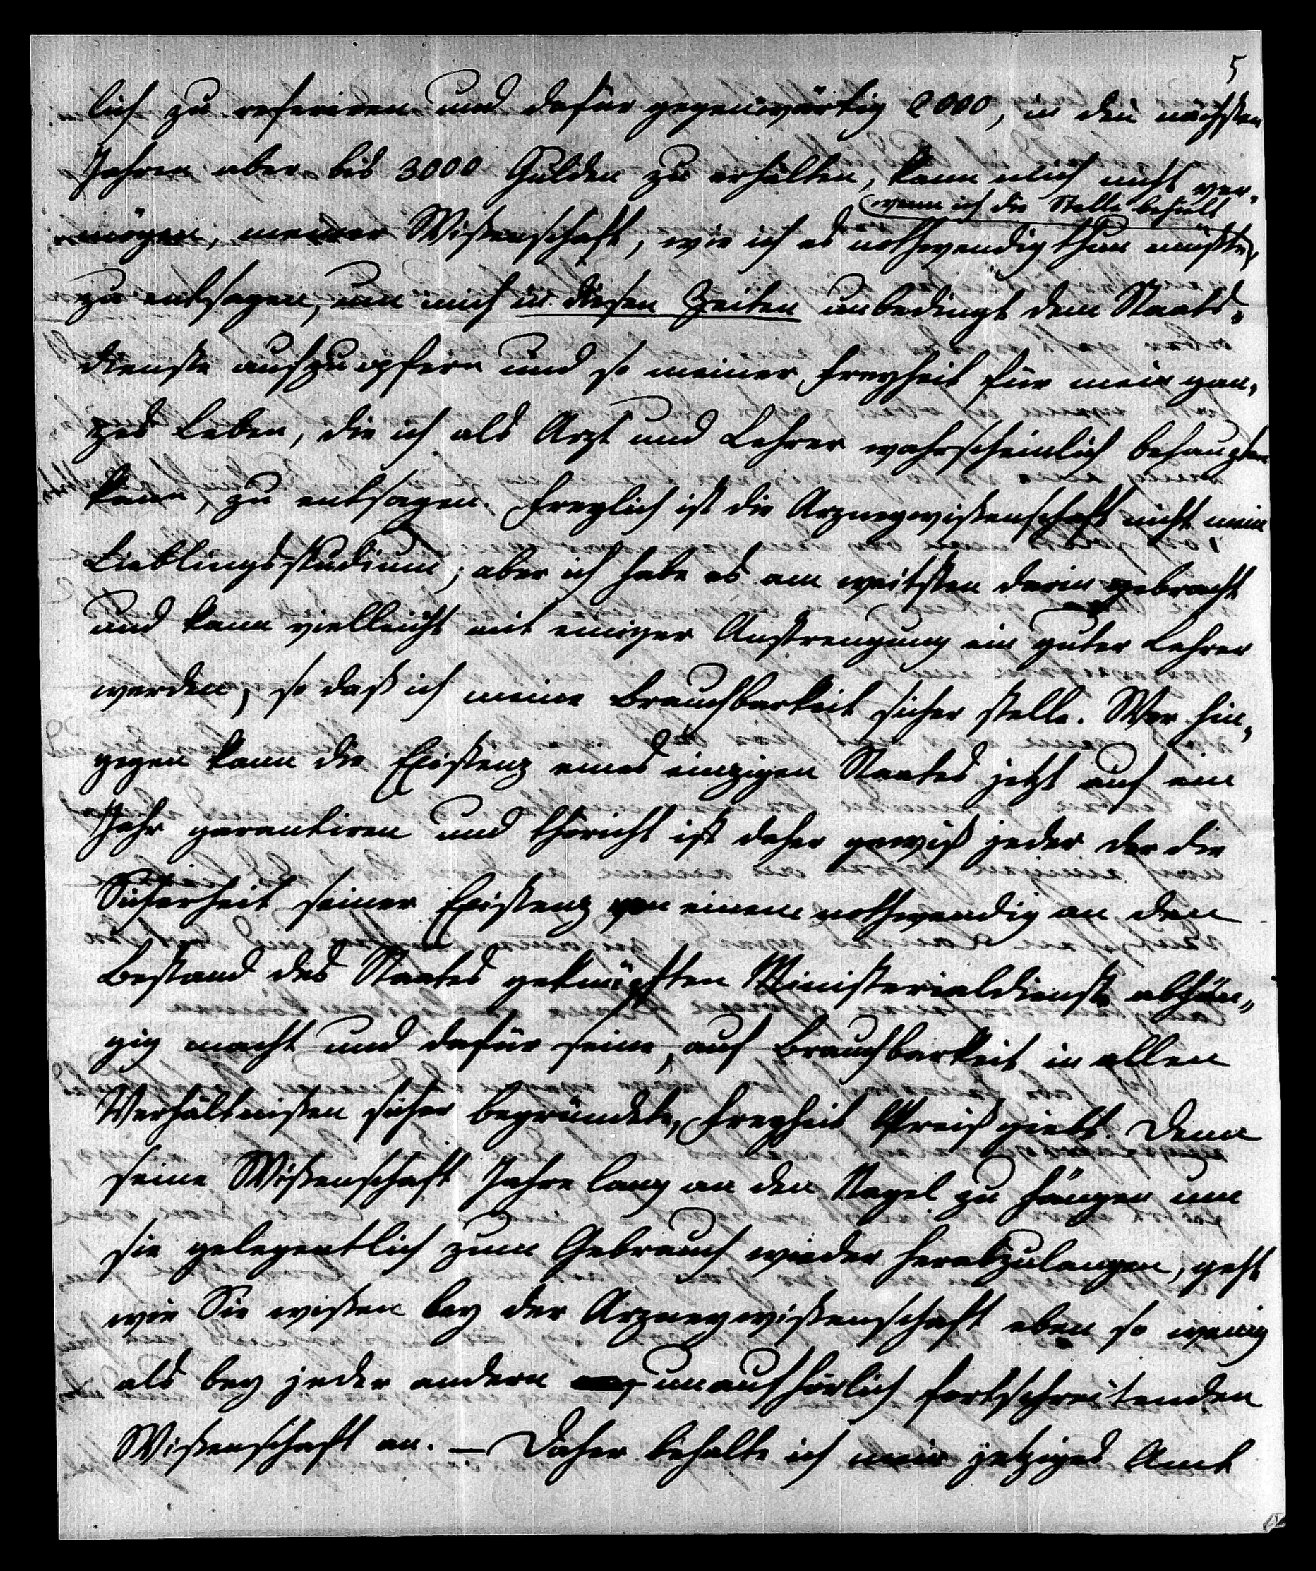 5
lich zu referiren und dafür gegenwärtig 2000, in den nächsten
Jahren aber bis 3000 Gulden zu erhalten, kann mich nicht ver-
(wenn ich die Stelle behielt
mögen, meiner Wißenschaft, wie ich es nothwendig thun müßte)
zu entsagen, um mich in diesen Zeiten unbedingt dem Staats-
dienste aufzuopfern und so meiner Freyheit für mein gan-
zes Leben, die ich als Arzt und Lehrer wahrscheinlich behaupten
kann, zu entsagen. Freylich ist die Arzneywißenschaft nicht mein
Lieblingsstudium; aber ich habe es am weitsten darin gebracht
und kann vielleicht mit einiger Anstrengung ein guter Lehrer
werden, so daß ich meine Brauchbarkeit sicher stelle. Wer hin-
gegen kann die Existenz eines einzigen Staates jetzt auf ein
Jahr garantiren und thöricht ist daher gewiß jeder der die
Sicherheit seiner Existenz von einem nothwendig an den
Bestand des Staates geknüpften Ministerialdienste abhän-
gig macht und dafür seine, auf Brauchbarkeit in allen
Verhältnißen sicher begründete, Freyheit Preiß giebt. Denn
seine Wißenschaft Jahre lang an den Nagel zu hängen um
sie gelegentlich zum Gebrauch wieder herabzulangen, geht
wie Sie wißen bey der Arzneywißenschaft eben so wenig
als bey jeder andern unaufhörlich fortschreitenden
Wißenschaft an. — Daher behalte ich mein jetziges Amt